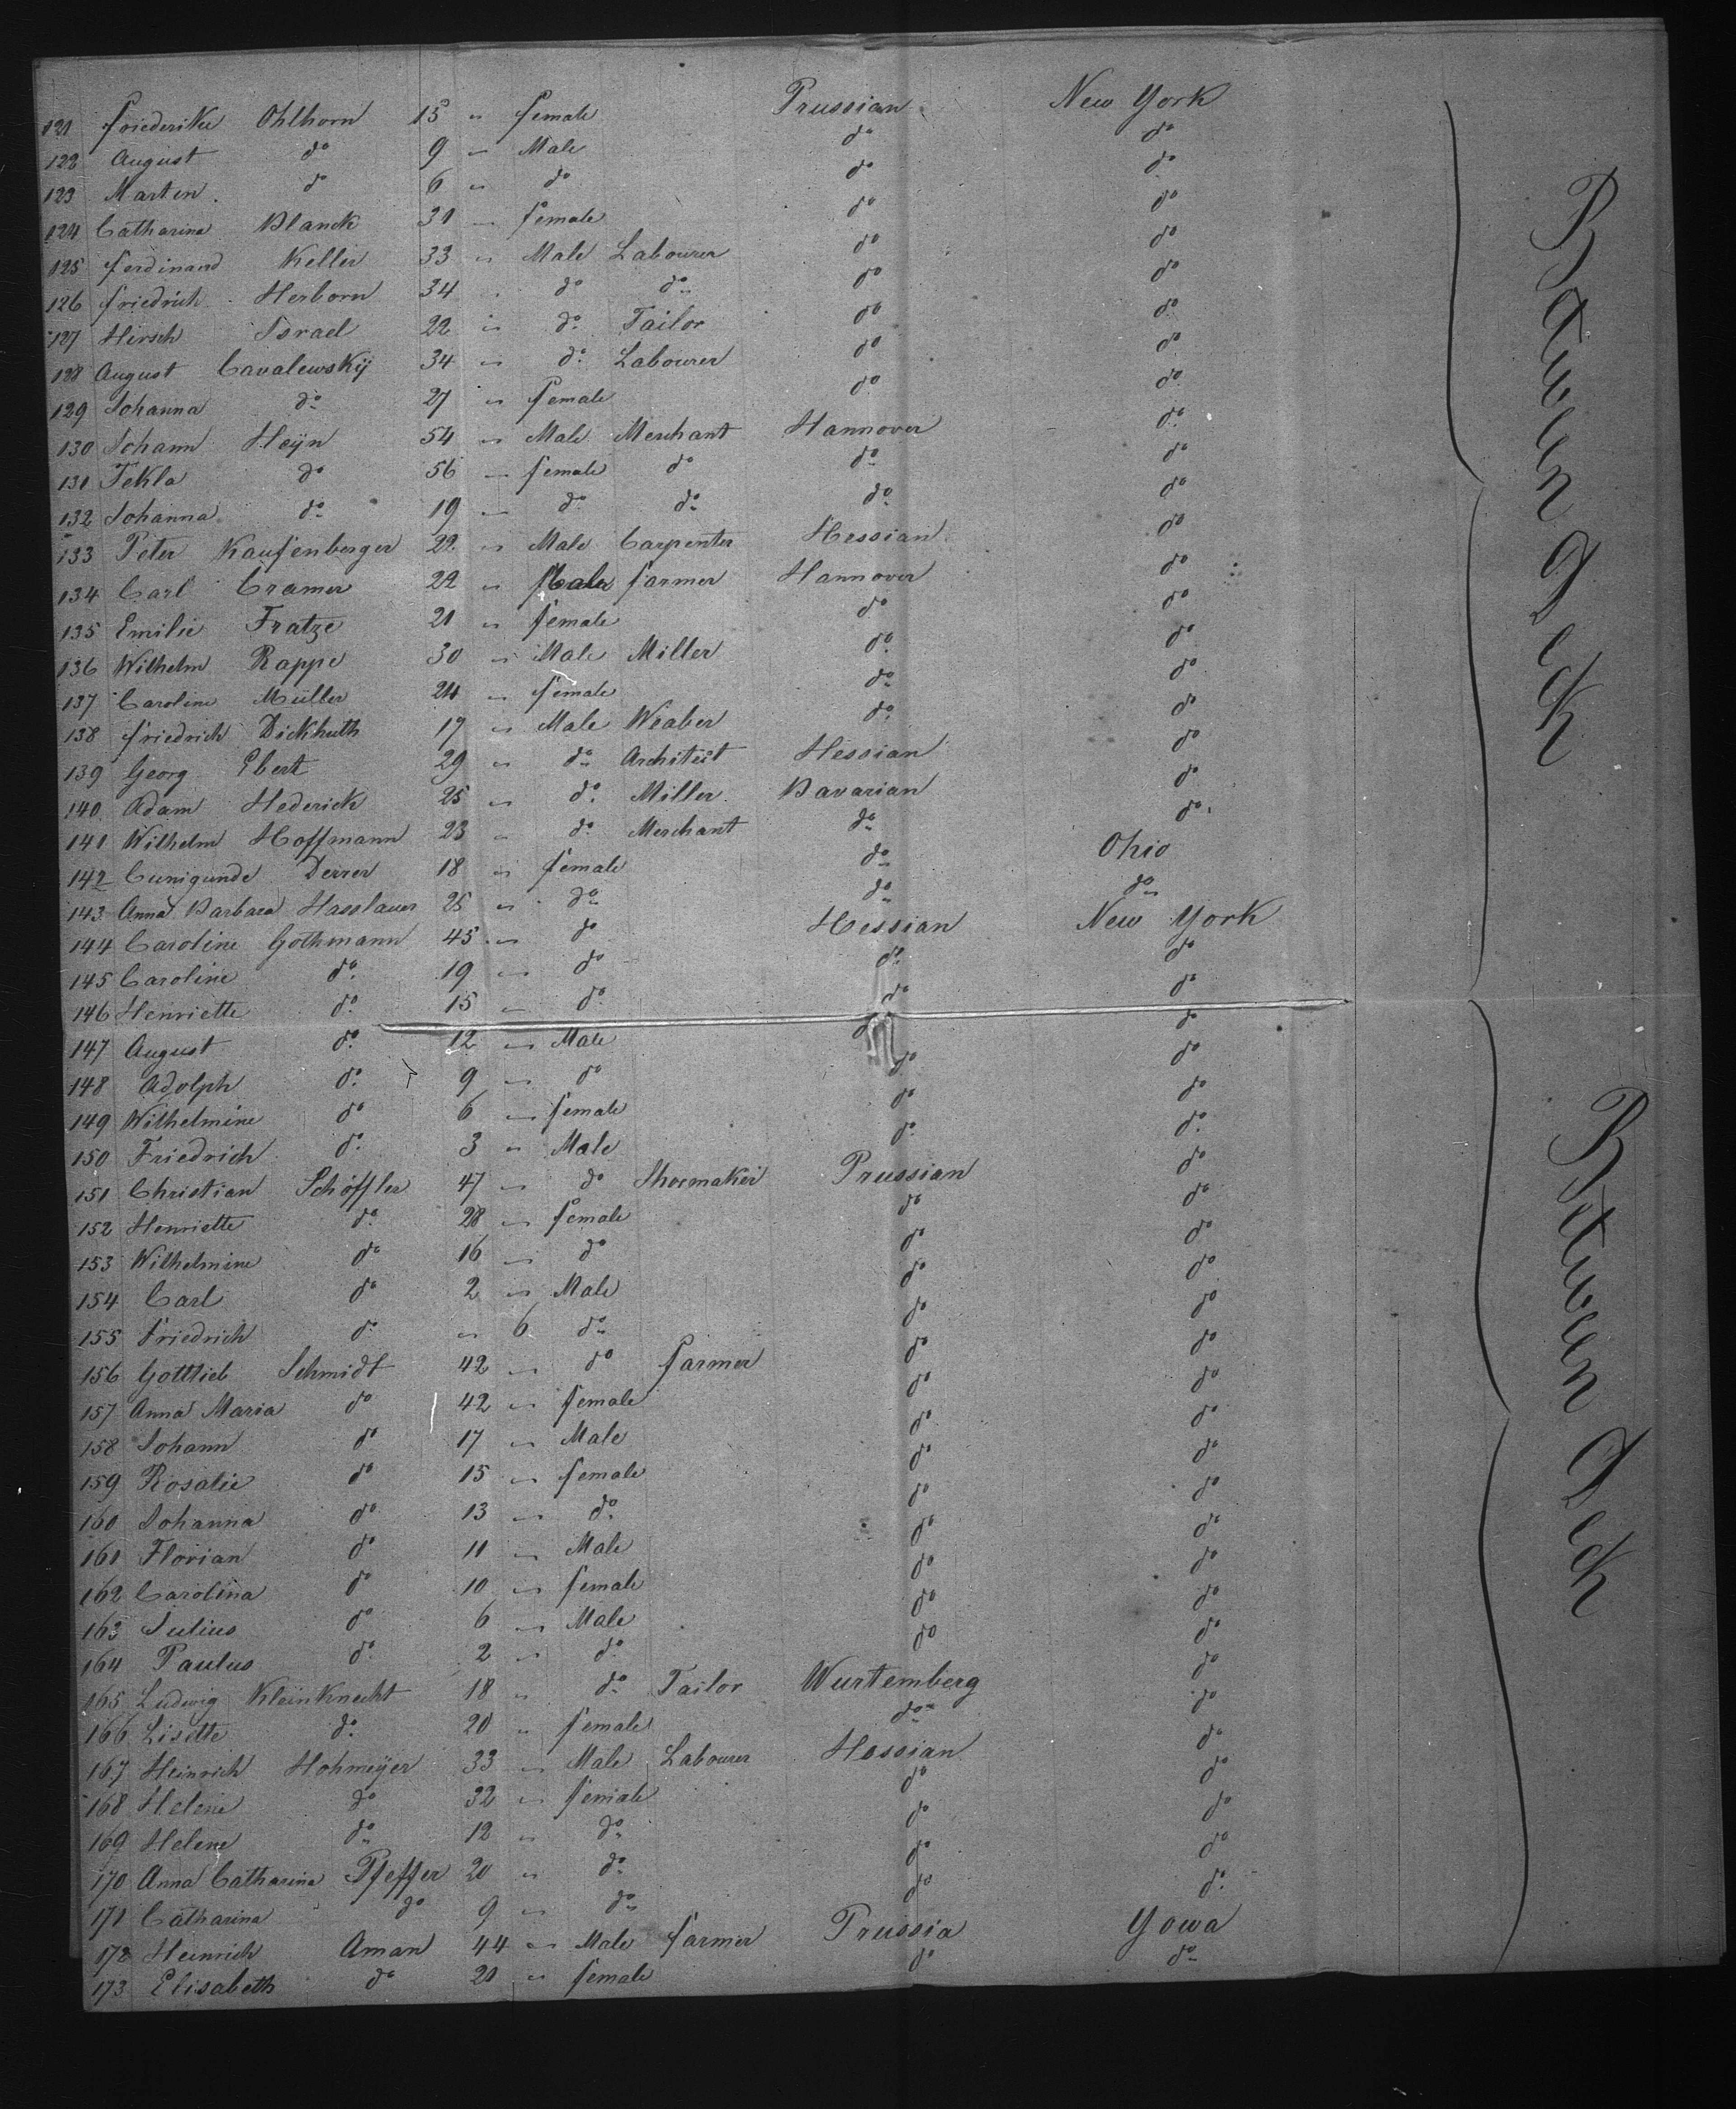 121 Friederike Ohlhorn 15 " female Prussian New York
122 August do 9 " Male do do
123 Marten do 6 " do do do
124 Catharina Blanck 31 " female do do
125 Ferdinand Keller 33 " Male Labourer do do
126 Friedrich Herborn 34 " do do do do
127 Hersch Israel 22 " do Tailor do do
128 August Cavalewskÿ 34 " do Labourer do do
129 Johanna do 27 " female do do
130 Johann Heÿn 54 " Male Merchant Hannover do
131 Tekla do 56 " female do do do
132 Johanna do 19 " do do do do
133 Peter Kaufenberger 22 " Male Carpenter Hessian do
134 Carl Cramer 22 " Male Farmer Hannover do
135 Emilie Fratze 21 " female do do
136 Wilhelm Rappe 30 " Male Miller do do
137 Caroline Müller 24 " female do do
138 Friedrich Dickhuth 17 " Male Weaber do do
139 Georg Ebert 29 " do Architect Hessian do
140 Adam Hederick 25 " do Miller Bavarian do
141 Wilhelm Hoffmann 23 " do Merchant do do
142 Cunigunde Derrer 18 " female do Ohio
143 Anna Barbara Hasslauer 25 " do do do
144 Caroline Gothmann 45 " do Hessian New York
145 Caroline do 19 " do do do
146 Henriette do 15 " do do do
147 August do 12 " Male do do
148 Adolph do 9 " do do do
149 Wilhelmine do 6 " female do do
150 Friedrich do 3 " Male do do
151 Christian Schöffler 47 " do Shoemaker Prussian do
152 Henriette do 28 " female do do
153 Wilhelmine do 16 " do do do
154 Carl do 2 " Male do do
155 Friedrich do " 6 do do do
156 Gottlieb Schmidt 42 " do Farmer do do
157 Anna Maria do 42 " female do do
158 Johann do 17 " Male do do
159 Rosalie do 15 " female do do
160 Johanna do 13 " do do do
161 Florian do 11 " Male do do
162 Carolina do 10 " female do do
163 Julius do 6 " Male do do
164 Paulus do 2 " do do do
165 Ludwig Kleinknecht 18 " do Tailor Wurtemberg do
166 Lisette do 20 " female do do
167 Heinrich Hohmeÿer 33 " Male Labourer Hessian do
168 Helene do 32 " female do do
169 Helene do 12 " do do do
170 Anna Catharina Pfeffer 20 " do do do
171 Catharina do 9 " do do do
172 Heinrich Aman 44 " Male Farmer Prussia Yowa
173 Elisabeth do 21 " female do do
Betwen Deck
Betwen Deck